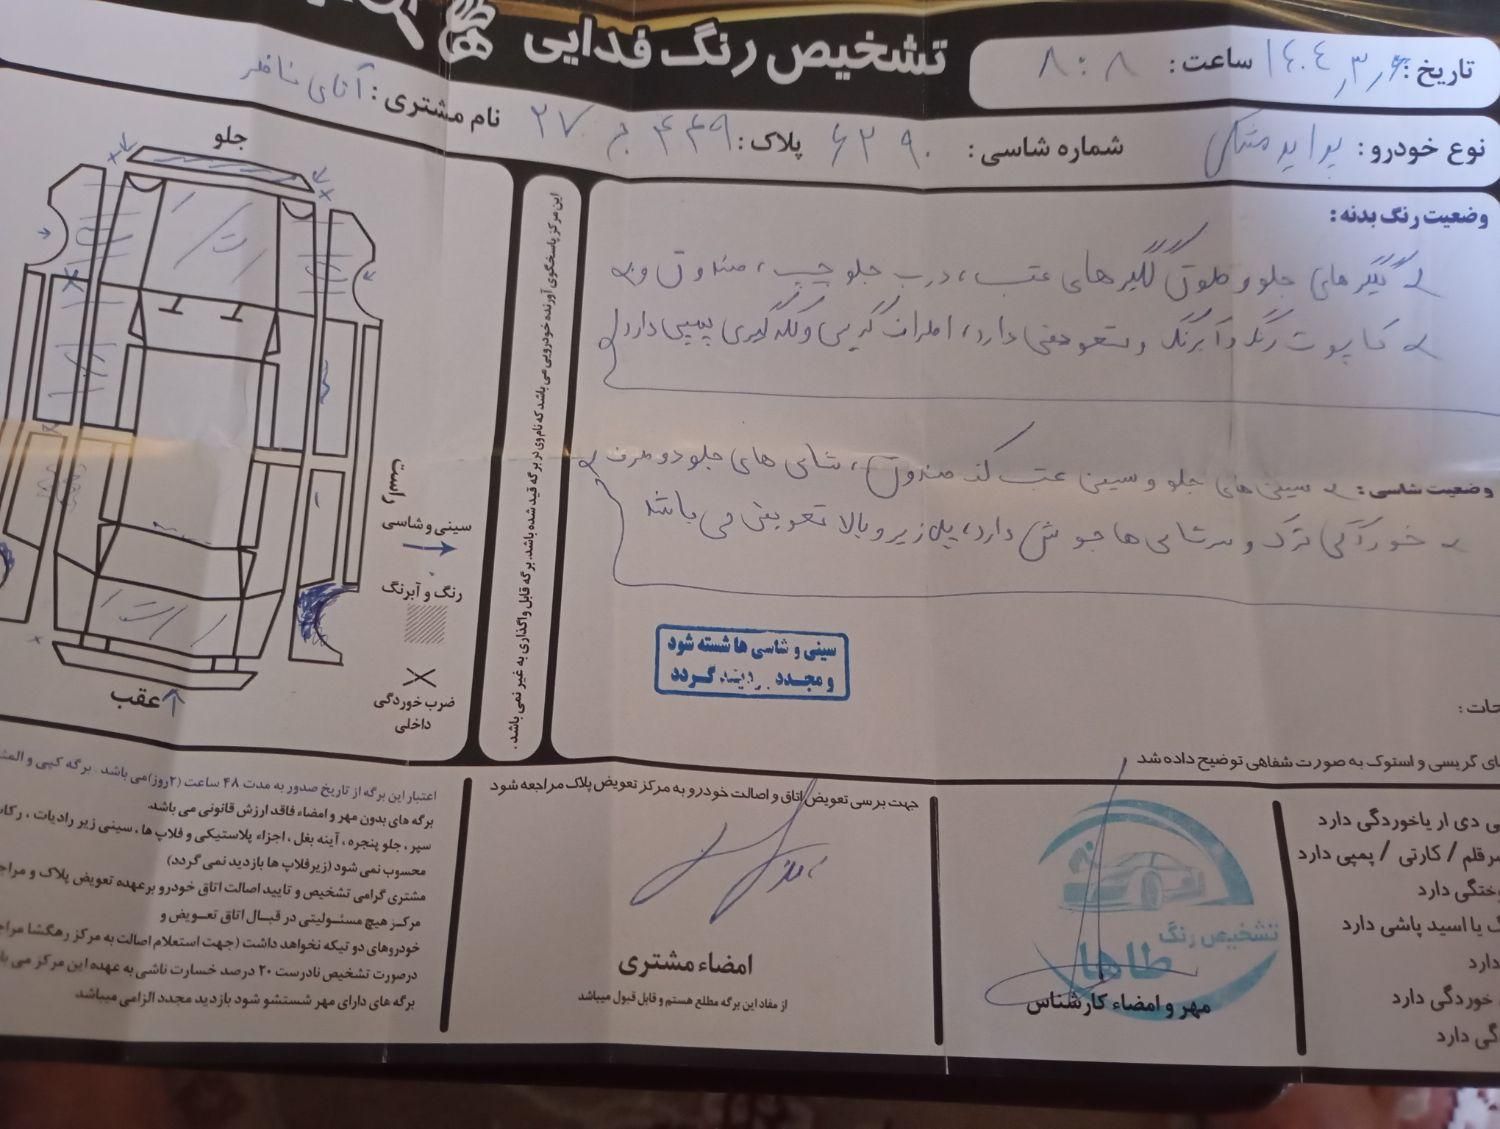 تشخیص رنگ فدایی
تاریخ: ۱۴۰۴٫۳٫۶ ساعت: ۸:۰۸
نوع خودرو: پراید مشکی شماره شاسی: ۶۲۹۰ پلاک: ۴۴۹ ج ۲۷ نام مشتری: آقای
وضعیت رنگ بدنه:
گلگیرهای جلو و گلگیرهای عقب، درب جلو چپ، صندوق و
کاپوت رنگ و آبرنگ و تعویضی دارد، اطراف گیری و لکه گیری پمپی دارد
وضعیت شاسی: سینی های جلو و سینی عقب کف صندوق، شاسی های جلو دو طرف
خوردگی ترک و سرشاسی ها جوش دارد، پل زیر و بالا تعویض می باشد
سینی و شاسی ها شسته شود
و مجدد گردد
این مرکز پاسخگوی آورنده خودرویی می باشد که نام وی در برگه قید شده باشد. برگه قابل واگذاری به غیر نمی باشد.
جلو
راست
سینی و شاسی
رنگ و آبرنگ
ضرب خوردگی
داخلی
عقب
حات:
های گریسی و استوک به صورت شفاهی توضیح داده شد
اعتبار این برگه از تاریخ صدور به مدت ۴۸ ساعت (۲روز) می باشد. برگه کپی و
برگه های بدون مهر و امضاء فاقد ارزش قانونی می باشد.
سپر، جلو پنجره، آینه بغل، اجزاء پلاستیکی و فلاپ ها، سینی زیر رادیات،
محسوب نمی شود (زیرفلاپ ها بازدید نمی گردد)
مشتری گرامی تشخیص و تایید اصالت اتاق خودرو برعهده تعویض پلاک و
مرکز هیچ مسئولیتی در قبال اتاق تعویض و
خودروهای دو تیکه نخواهد داشت (جهت استعلام اصالت به مرکز رهگشا
درصورت تشخیص نادرست ۲۰ درصد خسارت ناشی به عهده این مرکز می
برگه های دارای مهر شستشو شود بازدید مجدد الزامی میباشد
جهت برسی تعویض اتاق و اصالت خودرو به مرکز تعویض پلاک مراجعه شود
امضاء مشتری
از مفاد این برگه مطلع هستم و قابل قبول میباشد
تشخیص رنگ
طاها
مهر و امضاء کارشناس
ی دی ار یاخوردگی دارد
سرقلم / کارتی / پمپی دارد
وختگی دارد
ک یا اسید پاشی دارد
دارد
خوردگی دارد
گی دارد